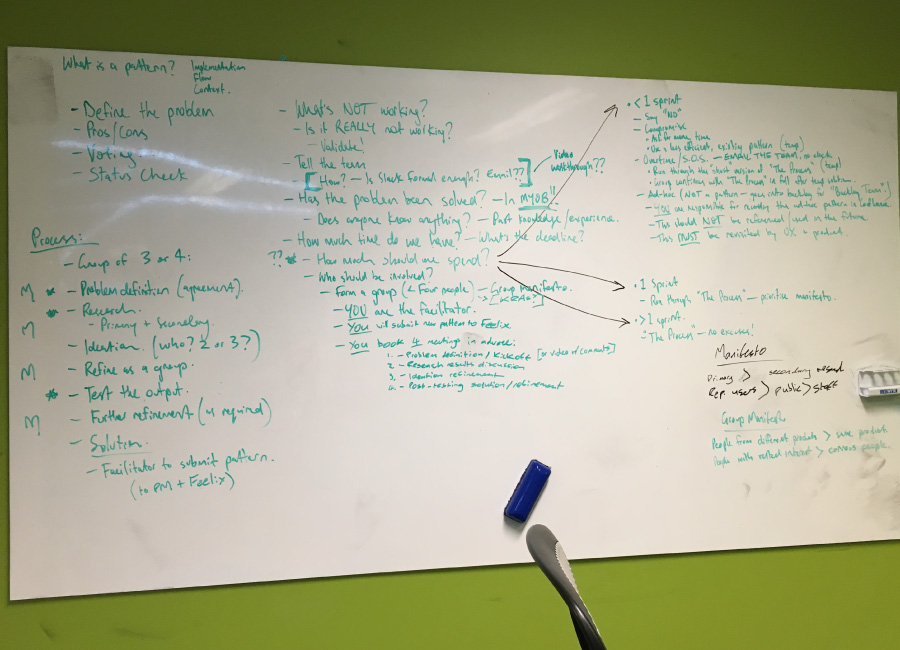 What is a pattern?
Implementation
Flow
Context.
- Define the problem
- Pros/Cons
- Voting
- Status Check
Process:
- Group of 3 or 4:
M * - Problem definition (agreement).
* - Research.
- Primary + secondary
M - Ideation. (who? 2 or 3?)
M - Refine as a group.
* - Test the output.
M - Further refinement (if required)
- Solution.
- Facilitator to submit pattern.
(to PM + Feelix)
- What's NOT working?
- Is it REALLY not working?
- Validate!
- Tell the team
[How? - Is Slack formal enough? Email??]
Video walkthrough??
- Has the problem been solved? - In MYOB!!
- Does anyone know anything? - Past knowledge/experience.
- How much time do we have? - What's the deadline?
?? * - How much should we spend?
- Who should be involved?
- Form a group (< Four people) - Group Manifesto.
- YOU are the facilitator.
- YOU will submit new pattern to Feelix
- YOU book 4 meetings in advance:
1. - Problem definition/Kickoff [or video of comments]
2. - Research results discussion
3. - Ideation refinement
4. - Post-testing solution/refinement
• < 1 sprint
- Say "NO"
- Compromise
• Ask for more time
• Use a less efficient, existing pattern (temp)
- Overtime/S.O.S. - EMAIL THE TEAM, or slack
• Run through the short version of "The Process" (temp)
• Group continues with "The Process" in full after temp solution.
- Ad-hoc (NOT a pattern - goes into backlog for "Backlog Team")
- YOU are responsible for recording the ad-hoc pattern in
- This should NOT be referenced/used in the future.
- This MUST be revisited by UX + product.
• 1 Sprint
- Run through "The Process" - prioritise manifesto.
• > 1 sprint.
- "The Process" - no excuses!
Manifesto
Primary > secondary
Rep. users > public > staff
Group Manifesto
People from different products > same products
People with vested interest > people.